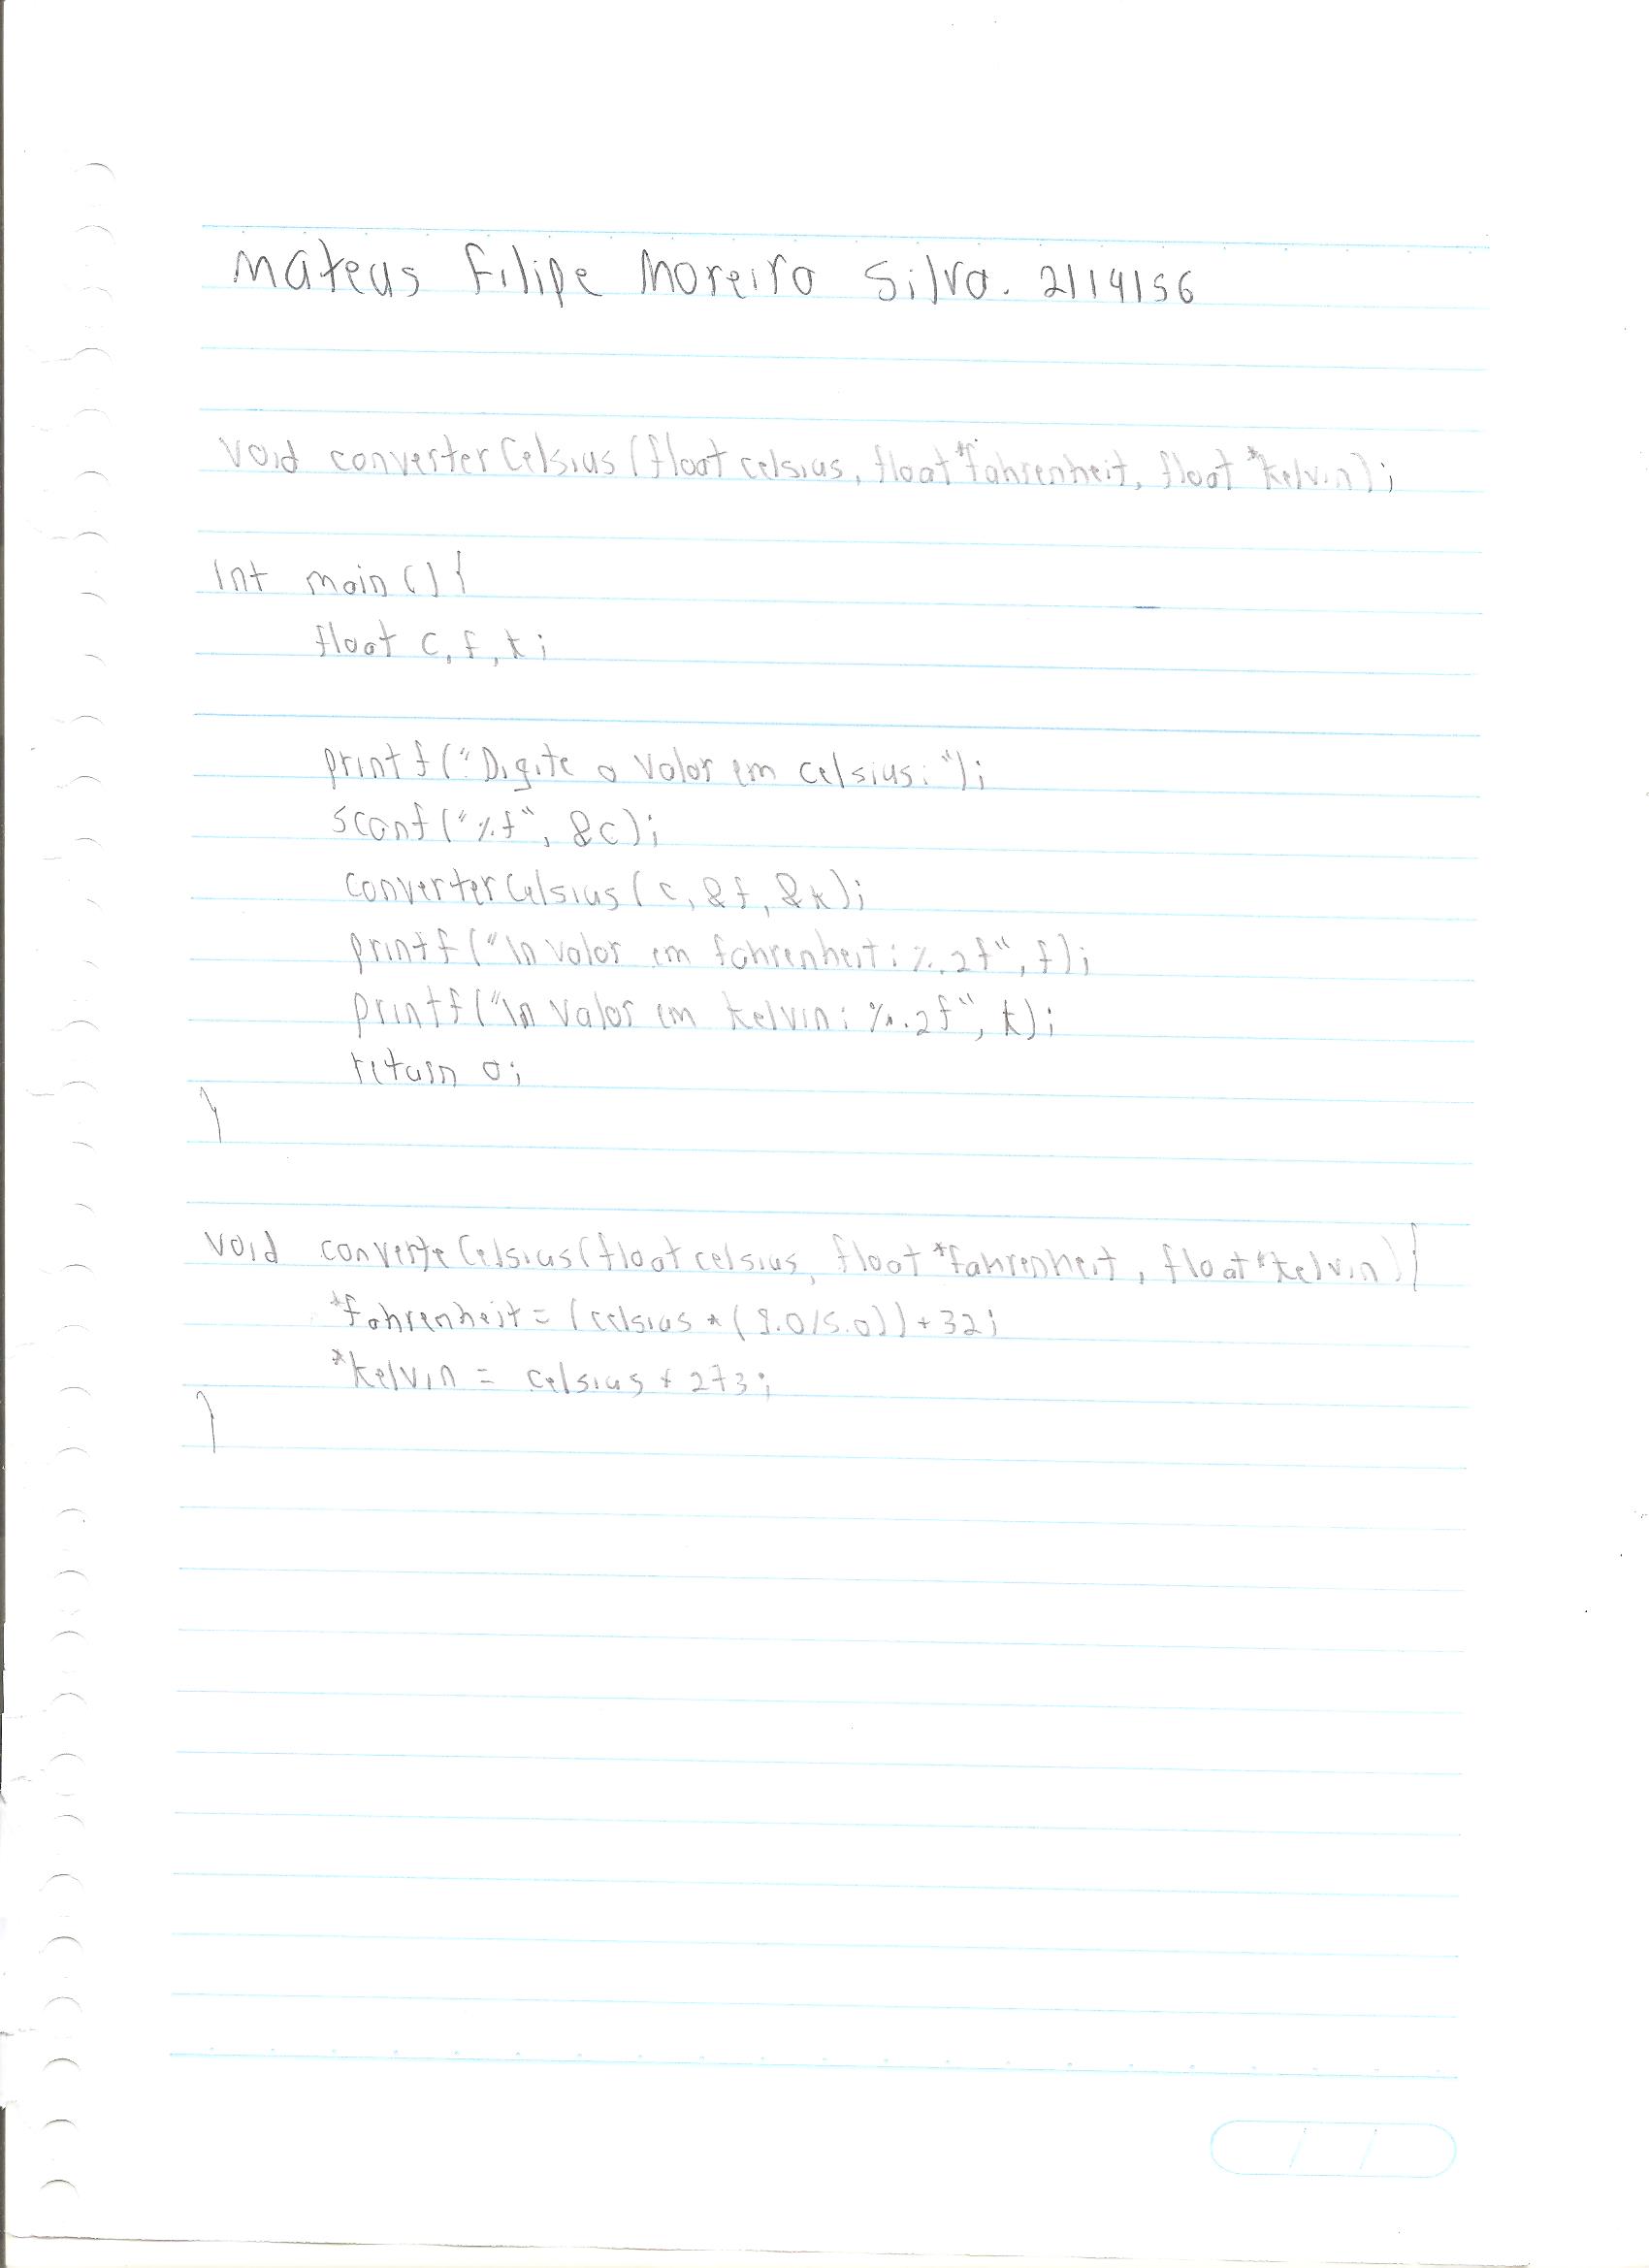 Mateus Filipe Moreira Silva. 2114156
void converterCelsius (float celsius, float *fahrenheit, float *kelvin);
int main () {
float c, f, k;
printf ("Digite o valor em celsius: ");
scanf ("%f", &c);
converterCelsius ( c, &f, &k);
printf ("\n valor em fahrenheit: %.2f", f);
printf ("\n valor em kelvin: %.2f", k);
return 0;
}
void converteCelsius (float celsius, float *fahrenheit, float *kelvin) {
*fahrenheit = (celsius * (9.0/5.0)) + 32;
*kelvin = celsius + 273;
}